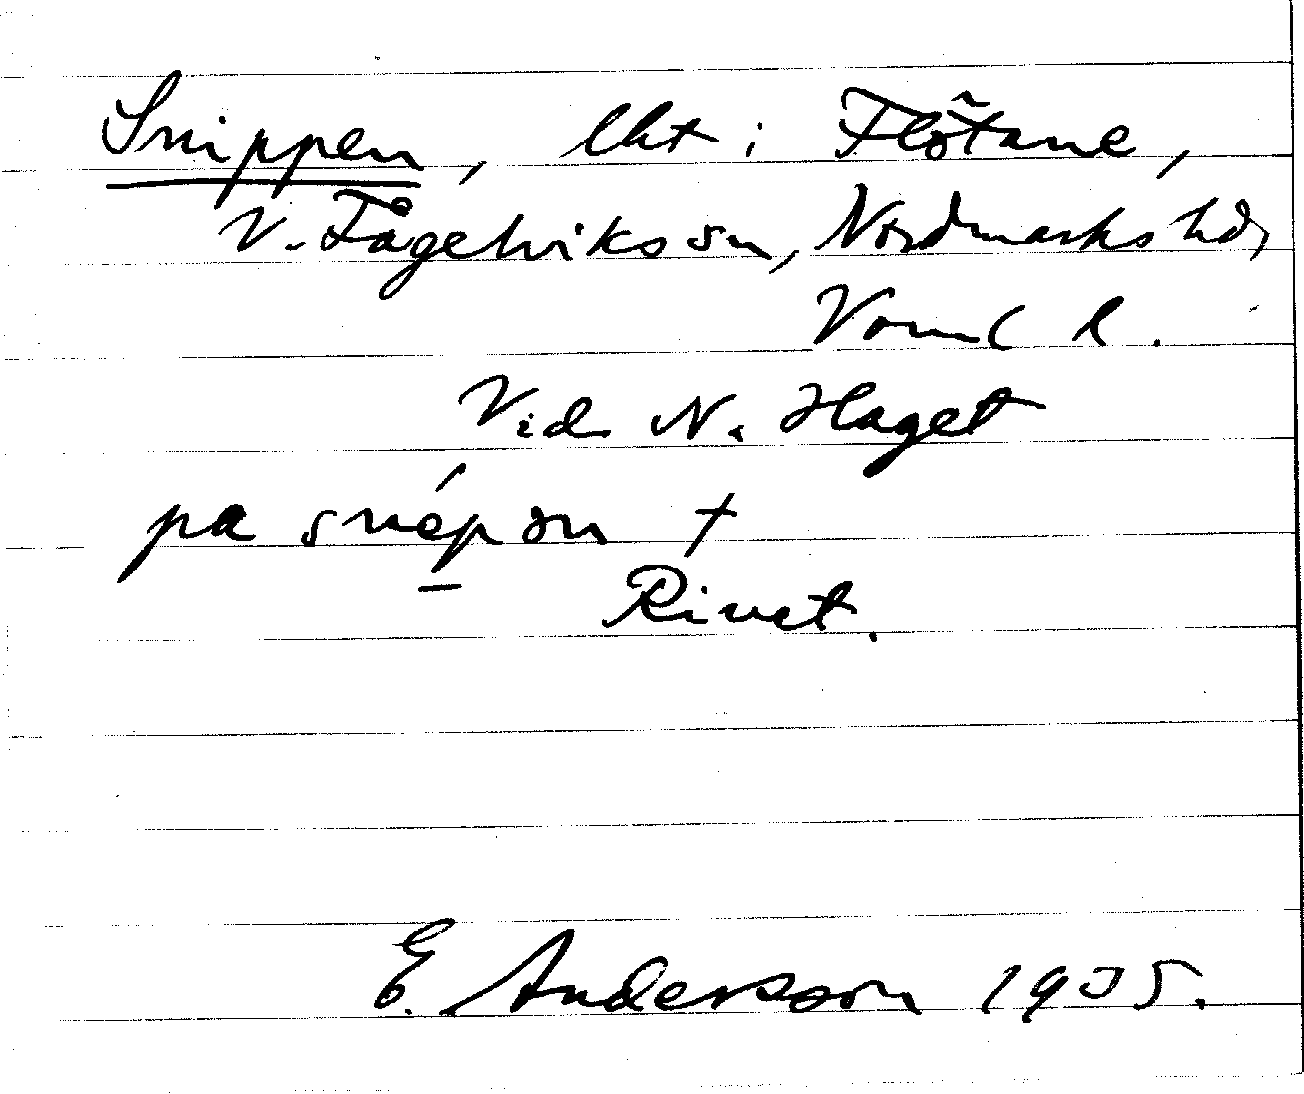 Snippen, lht i Flötane,
V. Fågelviks sn, Nordmarks hd,
Värml l.
Vid N. Haget
pa snépən †
Rivet.
E. Andersson 1935.